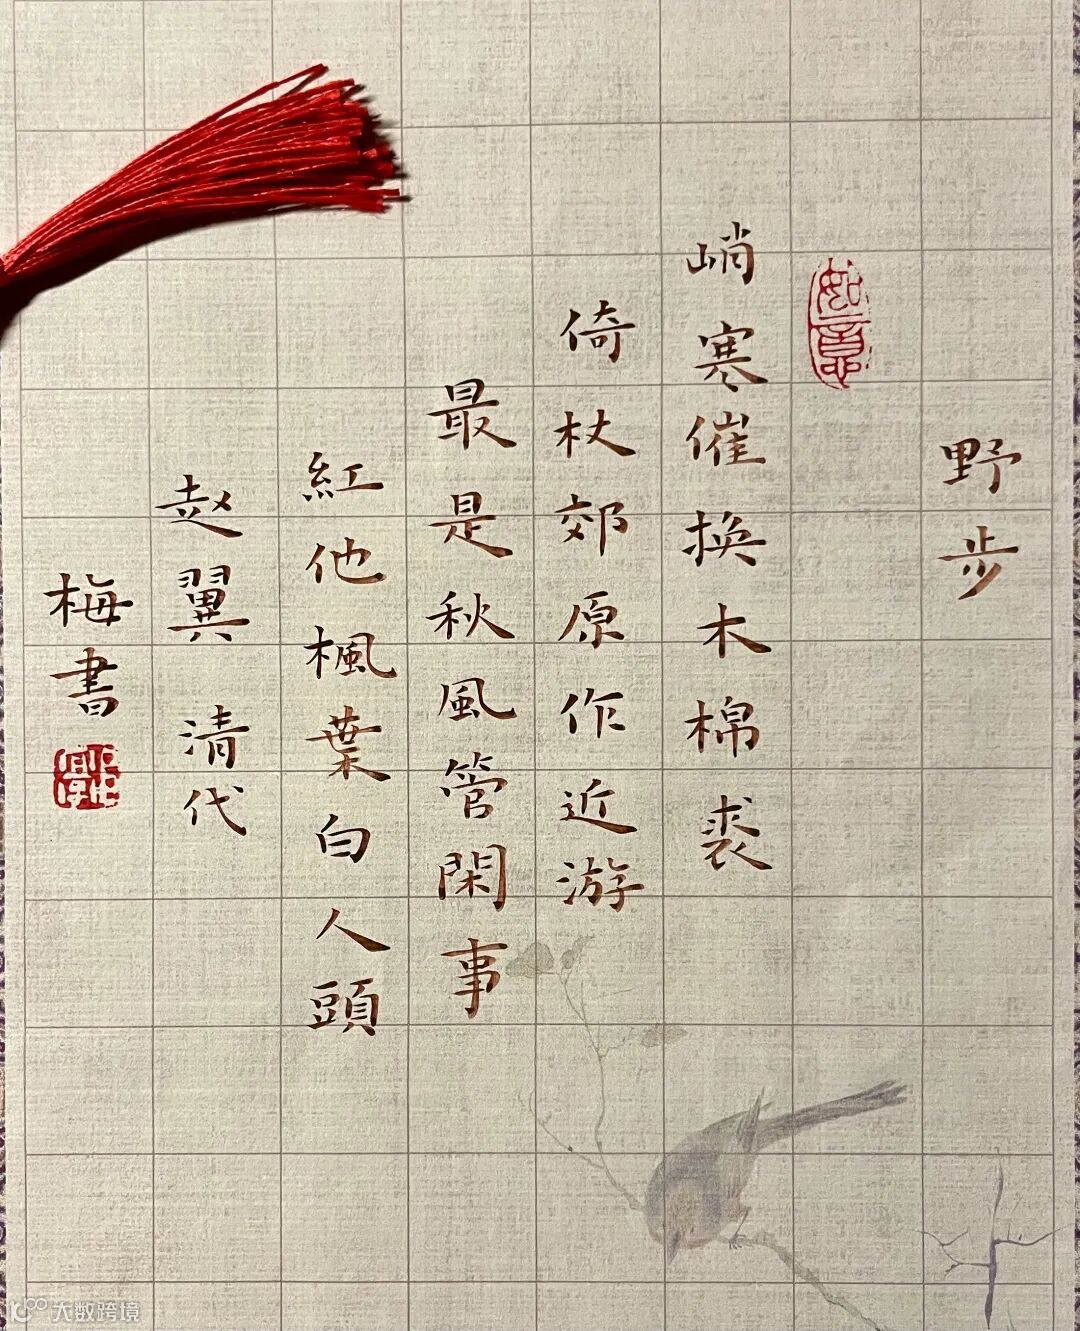 野步
如意
峭寒催换木棉裘
倚杖郊原作近游
最是秋風管閑事
紅他楓葉白人頭
赵翼 清代
梅書
大数跨境